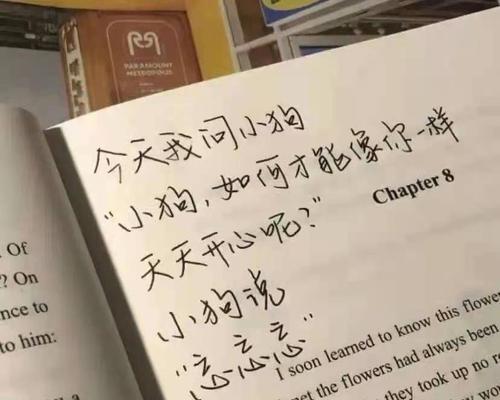 PARAMOUNT
METROPOLIS
今天我问小狗
"小狗,如何才能像你一样
天天开心呢?"
小狗说
"忘忘忘"
Chapter 8
I soon learned to know this flowe
net the flowers had always been
they took up no r
. Of
? On
nce to
to him: